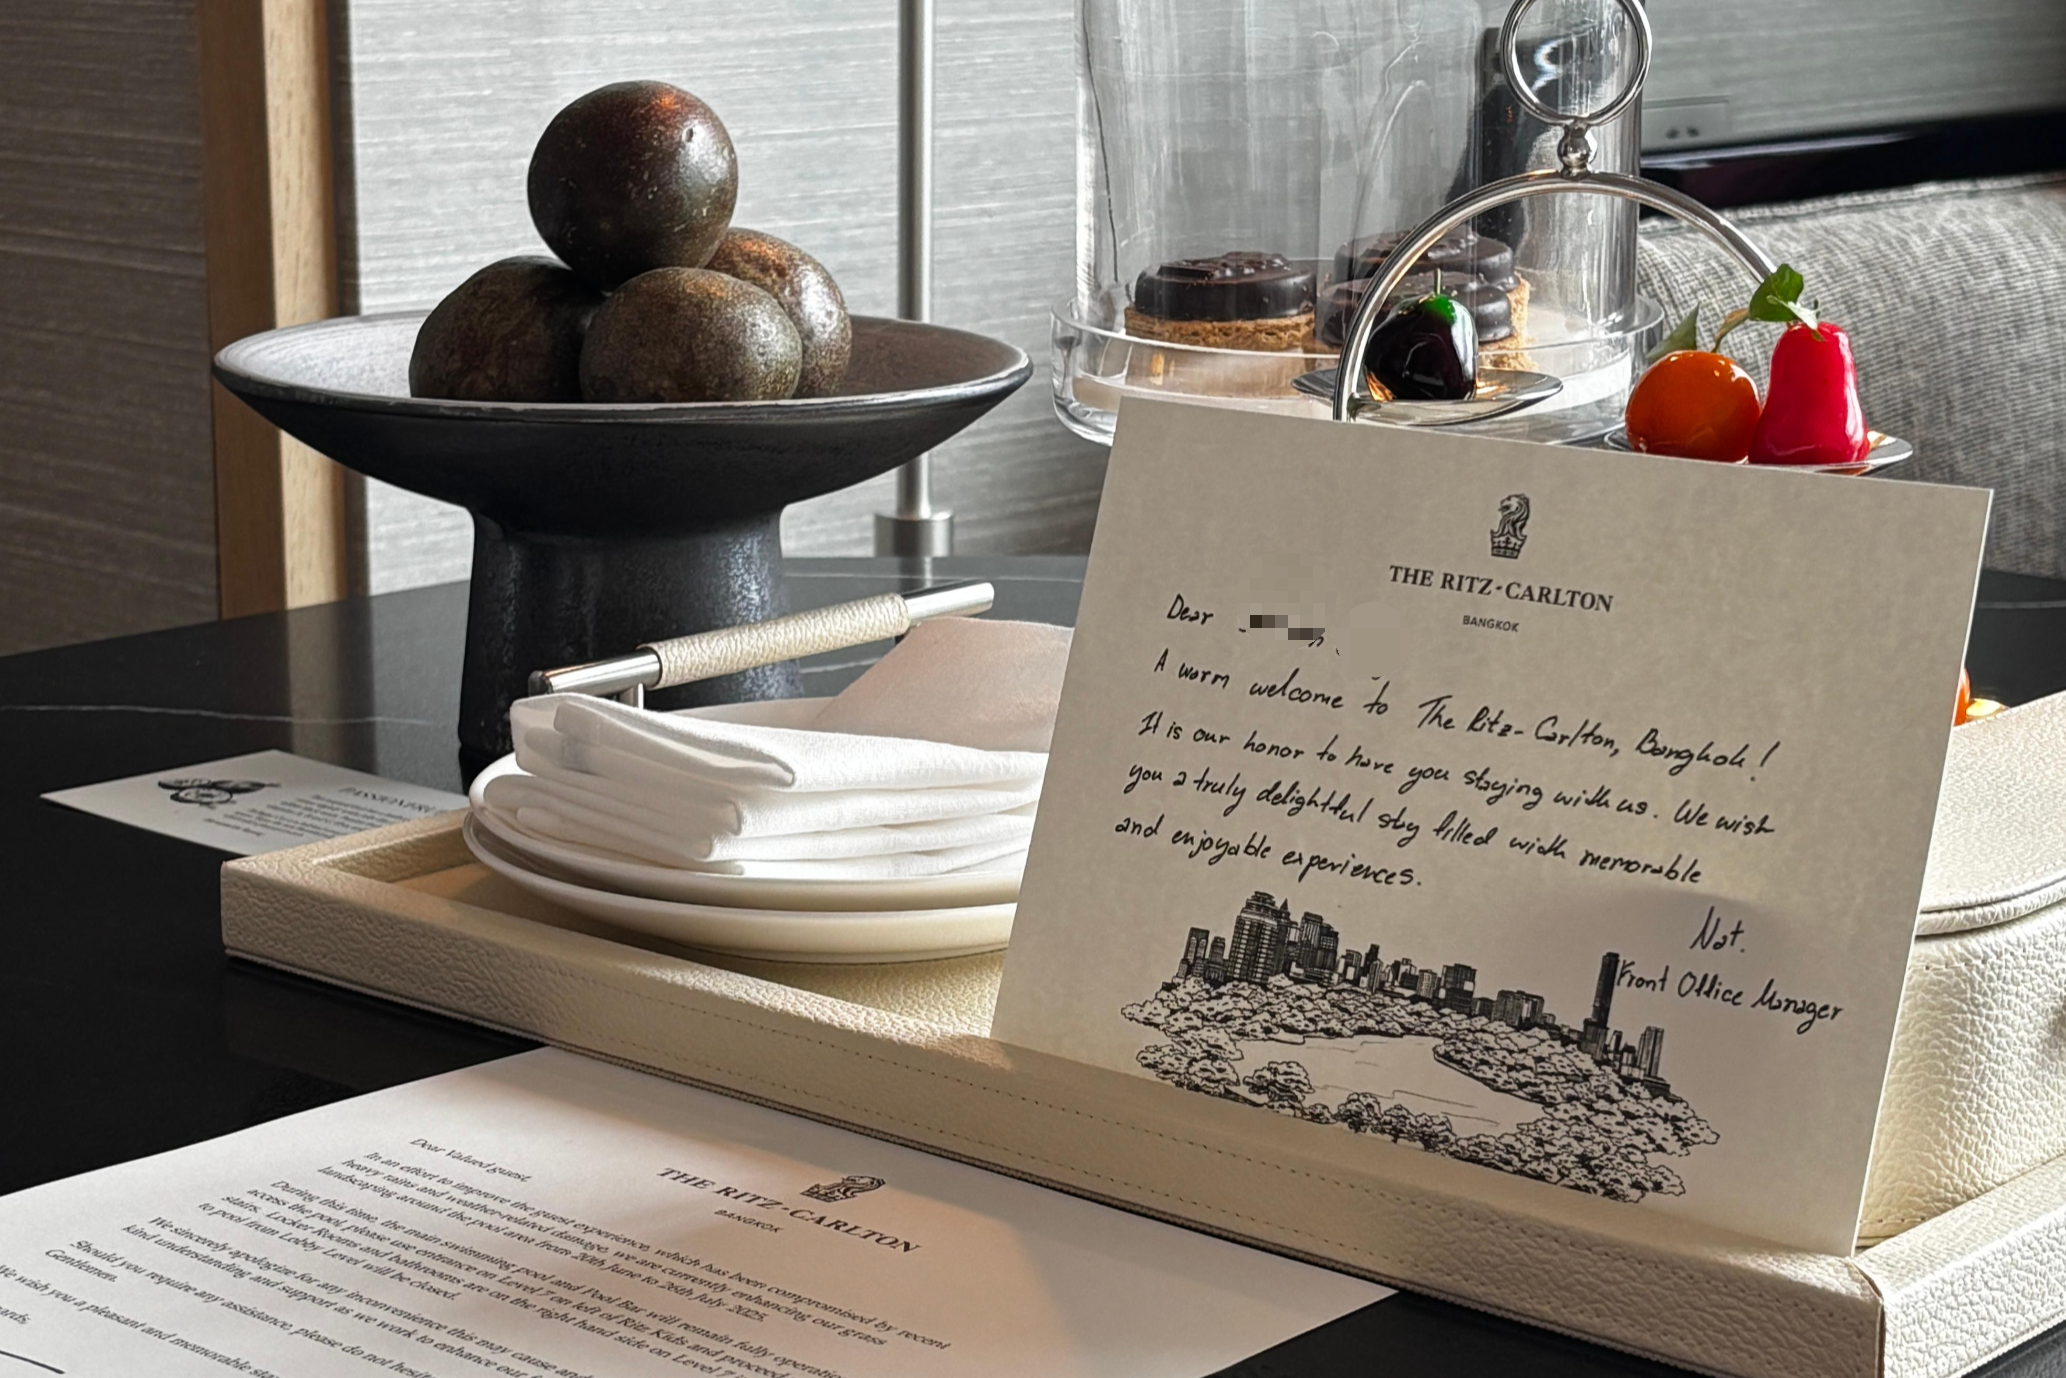 THE RITZ-CARLTON
BANGKOK
Dear
A warm welcome to The Ritz-Carlton, Bangkok!
It is our honor to have you staying with us. We wish
you a truly delightful stay filled with memorable
and enjoyable experiences.
Nat.
Front Office Manager
PASSIONFRU
THE RITZ-CARLTON
BANGKOK
Dear Valued guest,
In an effort to improve the guest experience, which has been compromised by recent
heavy rains and weather-related damage, we are currently enhancing our grass
landscaping around the pool area from 20th June to 26th July 2025.
During this time, the main swimming pool and Pool Bar will remain fully operatio
access the pool, please use entrance on Level 7 on left of Ritz Kids and proceed
stairs. Locker Rooms and bathrooms are on the right hand side on Level 7
to pool from Lobby Level will be closed.
We sincerely apologize for any inconvenience this may cause and
kind understanding and support as we work to enhance our
Should you require any assistance, please do not hesit
Gentlemen.
We wish you a pleasant and memorable sta
ards,